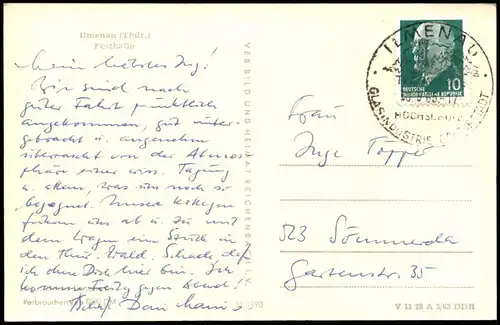 Ilmenau (Thür.)
Festhalle
Mein liebstes Ing!
Wir sind nach
guter Fahrt pünktlich
angekommen, gut unter-
gebracht u. angenehm
überrascht von der Atmos-
phäre einer wiss. Tagung
u. allem, was uns noch so
begegnet. Unsere Kollegen
führen uns ab u. zu mit
dem Wagen ein Stück in
den Thür. Wald. Schade, daß
ich ohne Dich hier bin. Ich
komme Freitag gegen Abend!
Dein Hans
Verbraucherpreis DM
VEB BILD UND HEIMAT REICHENBACH I. V.
ILMENAU
HOCHSCHUL-
GLASINDUSTRIE
STADT
10
DEUTSCHE
DEMOKRATISCHE REPUBLIK
Frau
Inge Töpper
523 Sömmerda
Gartenstr. 35
V 11 28 A 3/63 DDR